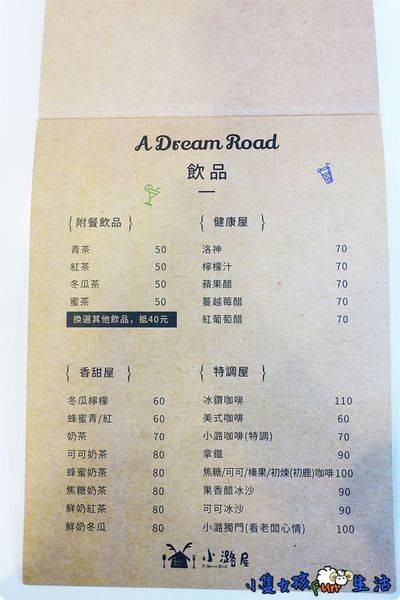 A Dream Road
飲品
附餐飲品
青茶 50
紅茶 50
冬瓜茶 50
蜜茶 50
換選其他飲品，抵40元
健康屋
洛神 70
檸檬汁 70
蘋果醋 70
蔓越莓醋 70
紅葡萄醋 70
香甜屋
冬瓜檸檬 60
蜂蜜青/紅 60
奶茶 70
可可奶茶 80
蜂蜜奶茶 80
焦糖奶茶 80
鮮奶紅茶 80
鮮奶冬瓜 80
特調屋
冰鑽咖啡 110
美式咖啡 60
小潞咖啡(特調) 70
拿鐵 90
焦糖/可可/榛果/初煉(初鹿)咖啡 100
果香醋冰沙 90
可可冰沙 90
小潞獨門(看老闆心情) 100
小潞屋
A Dream Road
小隻女孩 Fun 生活